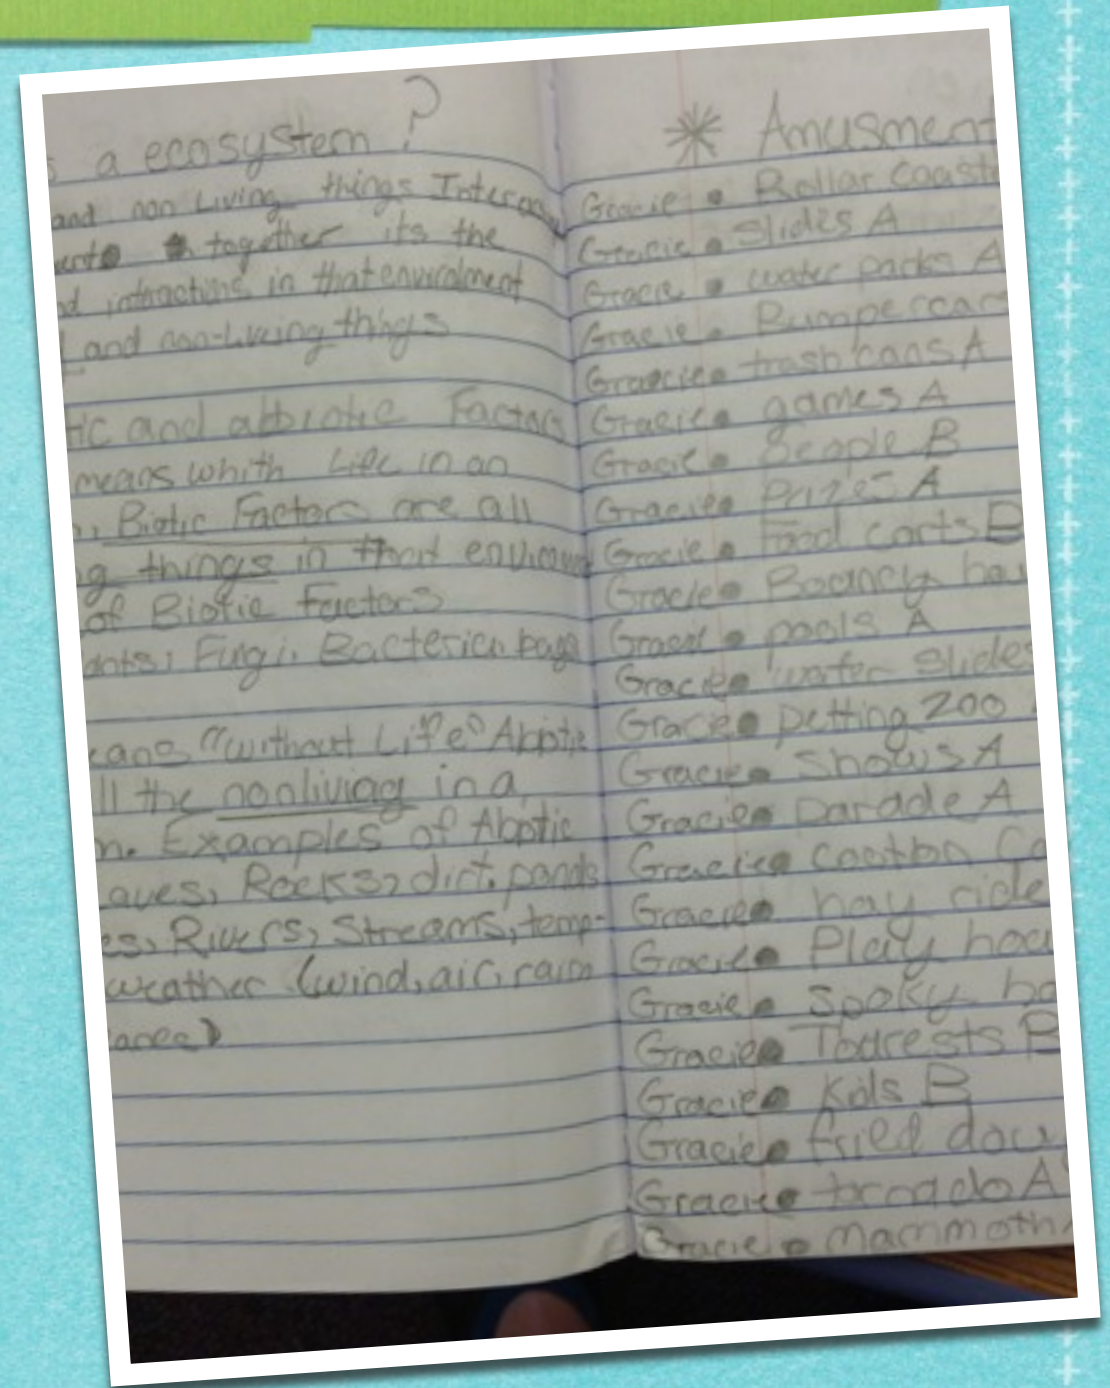 a ecosystem ?
and non Living things Interac
together its the
intractions in that enviroment
and non-Liveing things
tic and abbiotic Factors
means whith Life in an
Biotic Factors are all
g things in that envirom
of Biotic Factors
ants, Fugi, Bacterica, bugs
eans "without Life" Abotic
ll the nonliving in a
n. Examples of Abotic
aves, Rocks, dirt, ponds
es, Rivers, Streams, temp-
weather (wind, air, rain
ance)
* Amusment
Gracie • Rollar Coast
Gracie • slides A
Gracie • water parks A
Gracie • Bumpercar
Gracie • trash cans A
Gracie • games A
Gracie • People B
Gracie • Prizes A
Gracie • Food carts B
Gracie • Bouncy hou
Gracie • pools A
Gracie • water slides
Gracie • petting zoo
Gracie • Shows A
Gracie • parade A
Gracie • Cootton Co
Gracie • hay ride
Gracie • Play hou
Gracie • Spoky ho
Gracie • Tourests B
Gracie • Kids B
Gracie • fried dou
Gracie • tornado A
Gracie • mammoth